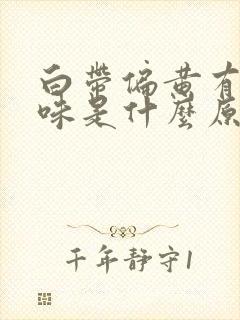 白带偏黄有
味是什麽原
千年静守1